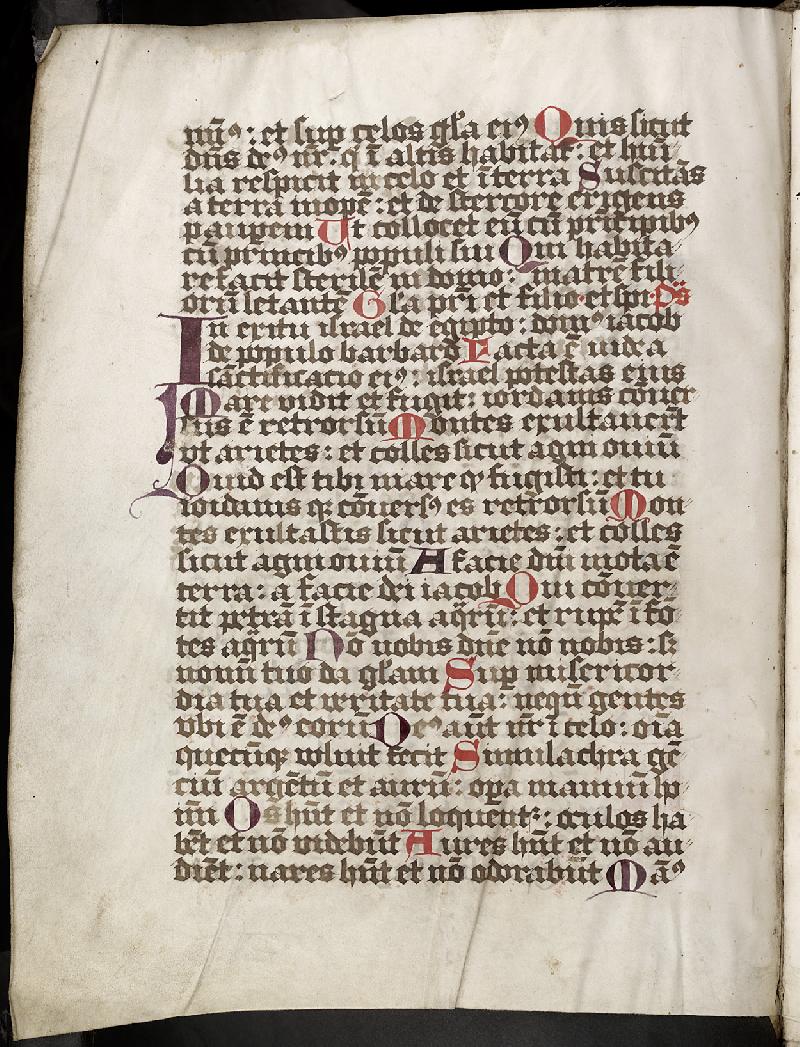 mīꝰ : et suꝑ celos gl̄a eiꝰ Quis sicut
dn̄s deꝰ nr̄. q̄ ī altis habitat : et humi
lia respicit in celo et ī terra Suscitās
a terra inopē : et de stercore erigens
pauꝑem Ut collocet eū cū prīcipibꝰ
cū principibꝰ populi sui Qui habita
re facit sterilē in domo : matrē fili
orū letantē Gl̄a pr̄i et filio · et spi · p̄s
In exitu isrl̄ael de egipto : domꝰ iacob
de populo barbaro Facta ē iudea
sāctificacio eiꝰ : israel potestas eius
Mare vidit et fugit : iordanis cōuer
sus ē retrorsū Montes exultauer̄t
vt arietes : et colles sicut agni ouiū
Quid est tibi mare ꝙ fugisti : et tu
iordanis qꝫ cōuersꝰ es retrorsū Mon
tes exultastis sicut arietes : et colles
sicut agni ouiū A facie dn̄i mota ē
terra : a facie dei iacob Qui cōuer
tit petrā ī stagna aq̄rū : et rupē ī fō
tes aq̄rū Nō nobis dn̄e nō nobis : sꝫ
nomī tuo da gl̄am Suꝑ misericor
dia tua et veritate tua : neqū gentes
vbi ē deꝰ eorū Deꝰ aūt nr̄ ī celo : oīa
quecūqꝫ voluit fecit Simulachra gē
ciū argētū et aurū : oꝑa manuū ho
mī Os hn̄t et nō loquent᷑ : oculos ha
bēt et nō videbūt Aures hn̄t et nō au
diēt : nares hn̄t et nō odorabūt Māꝰ